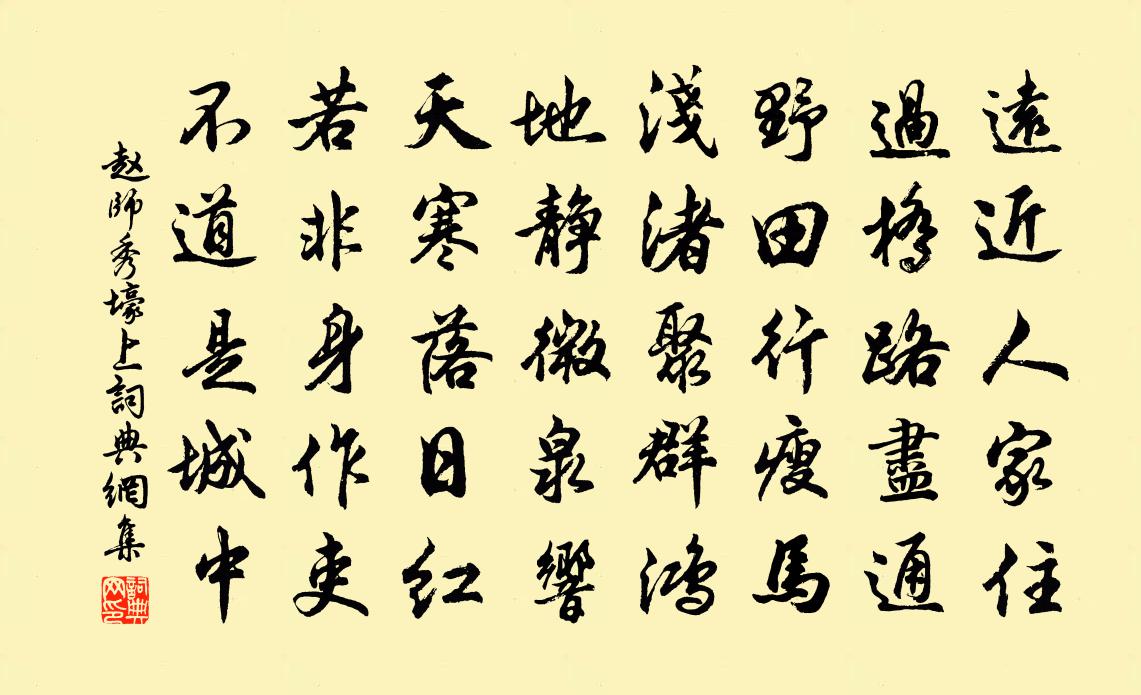 遠近人家住
過橋路盡通
野田行瘦馬
淺渚聚群鴻
地靜微泉響
天寒落日紅
若非身作吏
不道是城中
赵師秀壕上詞典網集
詞典網印